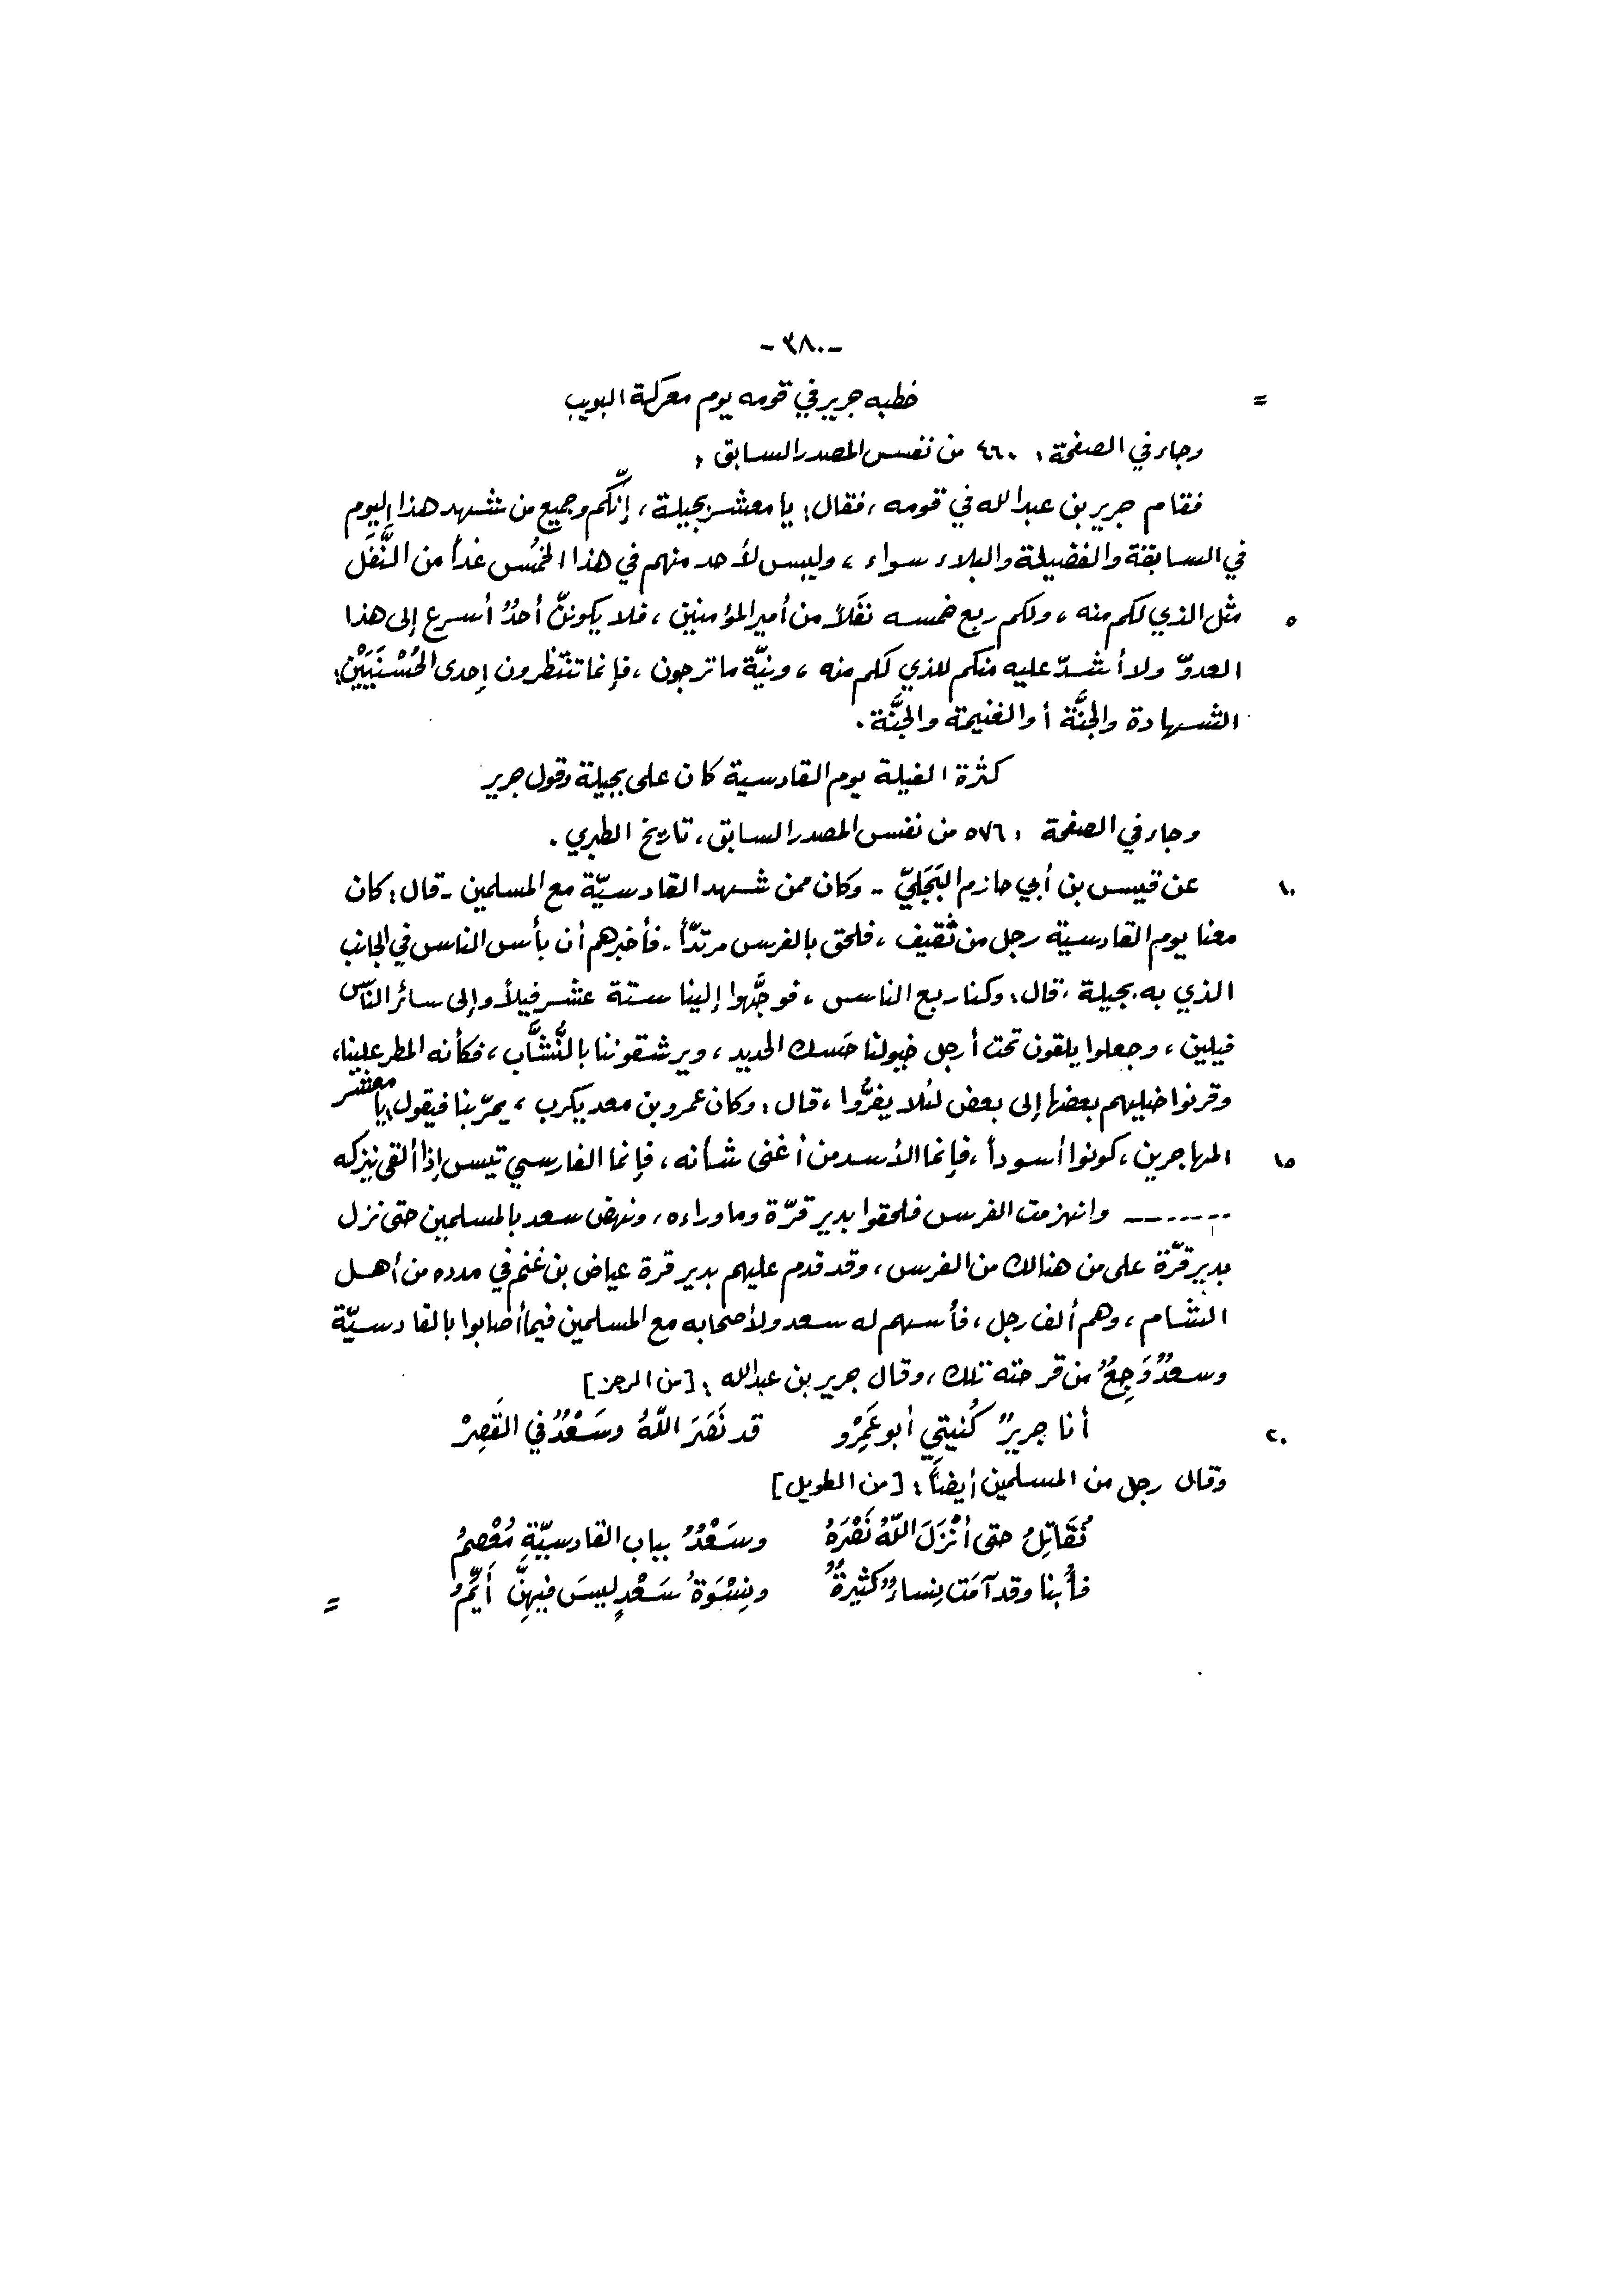 -٣٨٠-
= خطبه جرير في قومه يوم معركة البويب
وجاء في الصفحة: ٤٦٠ من نفس المصدر السابق:
فقام جرير بن عبدالله في قومه، فقال: يا معشر بجيلة، إنّكم وجميع من شهد هذا اليوم
في السابقة والفضيلة والبلاء سواء، وليس لأحد منهم في هذا الخمُس غداً من النَّفَل
٥ مثل الذي لكم منه، ولكم ربع خمسه نفَلاً من أمير المؤمنين، فلا يكوننّ أحدٌ أسرع إلى هذا
العدوّ ولا أشدّ عليه منكم للذي لكم منه، ونيّة ما ترجون، فإنما تنتظرون إحدى الحُسْنَيَيْن:
الشهادة والجنَّة أو الغنيمة والجنَّة.
كثرة الفيلة يوم القادسية كان على بجيلة وقول جرير
وجاء في الصفحة: ٥٧٦ من نفس المصدر السابق، تاريخ الطبري.
١٠ عن قيس بن أبي حازم البَجَليّ - وكان ممن شهد القادسيّة مع المسلمين - قال: كان
معنا يوم القادسية رجل من ثَقيف، فلحق بالفرس مرتدّاً، فأخبرهم أن بأس الناس في الجانب
الذي به بجيلة، قال: وكنا ربع الناس، فوجَّهوا إلينا ستة عشر فيلاً وإلى سائر النّاس
فيلين، وجعلوا يلقون تحت أرجل خيولنا حَسك الحديد، ويرشقوننا بالنُّشَّاب، فكأنه المطر علينا،
وقرنوا خيليهم بعضها إلى بعض لئلا يفرُّوا، قال: وكان عمرو بن معد يكرب، يمرّ بنا فيقول: يا معشر
١٥ المهاجرين، كونوا أسوداً، فإنما الأسد من أغنى شأنه، فإنما الفارسي تيس إذا ألقى نيزكه
------- وانهزمت الفرس فلحقوا بدير قرّة وما وراءه، ونهض سعد بالمسلمين حتى نزل
بدير قرَّة على من هنالك من الفرس، وقد قدم عليهم بدير قرة عياض بن غنم في مدده من أهل
الشام، وهم ألف رجل، فأسهم له سعد ولأصحابه مع المسلمين فيما أصابوا بالقادسيّة
وسعدٌ وَجِعٌ من قرحته تلك، وقال جرير بن عبدالله: [من الرجز]
٢٠ أنا جريرٌ كُنيتي أبو عَمِرْو قد نَصَرَ اللّهُ وسَعْدٌ في القَصِرْ
وقال رجل من المسلمين أيضاً: [من الطويل]
نُقَاتِلُ حتى أنْزَلَ اللّهُ نَصْرَهُ وسَعْدٌ بباب القادسيّةِ مُعْصِمُ
فأُبنا وقد آمَت نِساءٌ كثيرةٌ ونِسْوَةُ سَعْدٍ ليسَ فيهِنَّ أَيِّمُ =